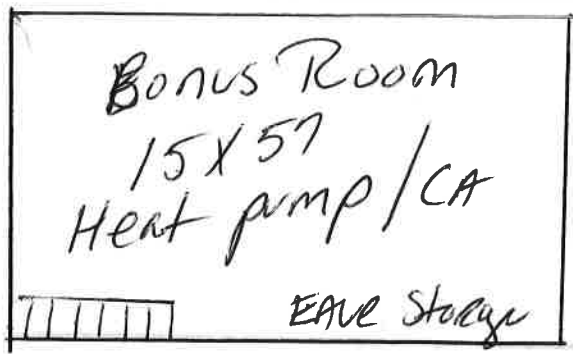 Bonus Room
15X57
Heat pump/CA
EAVE Storage